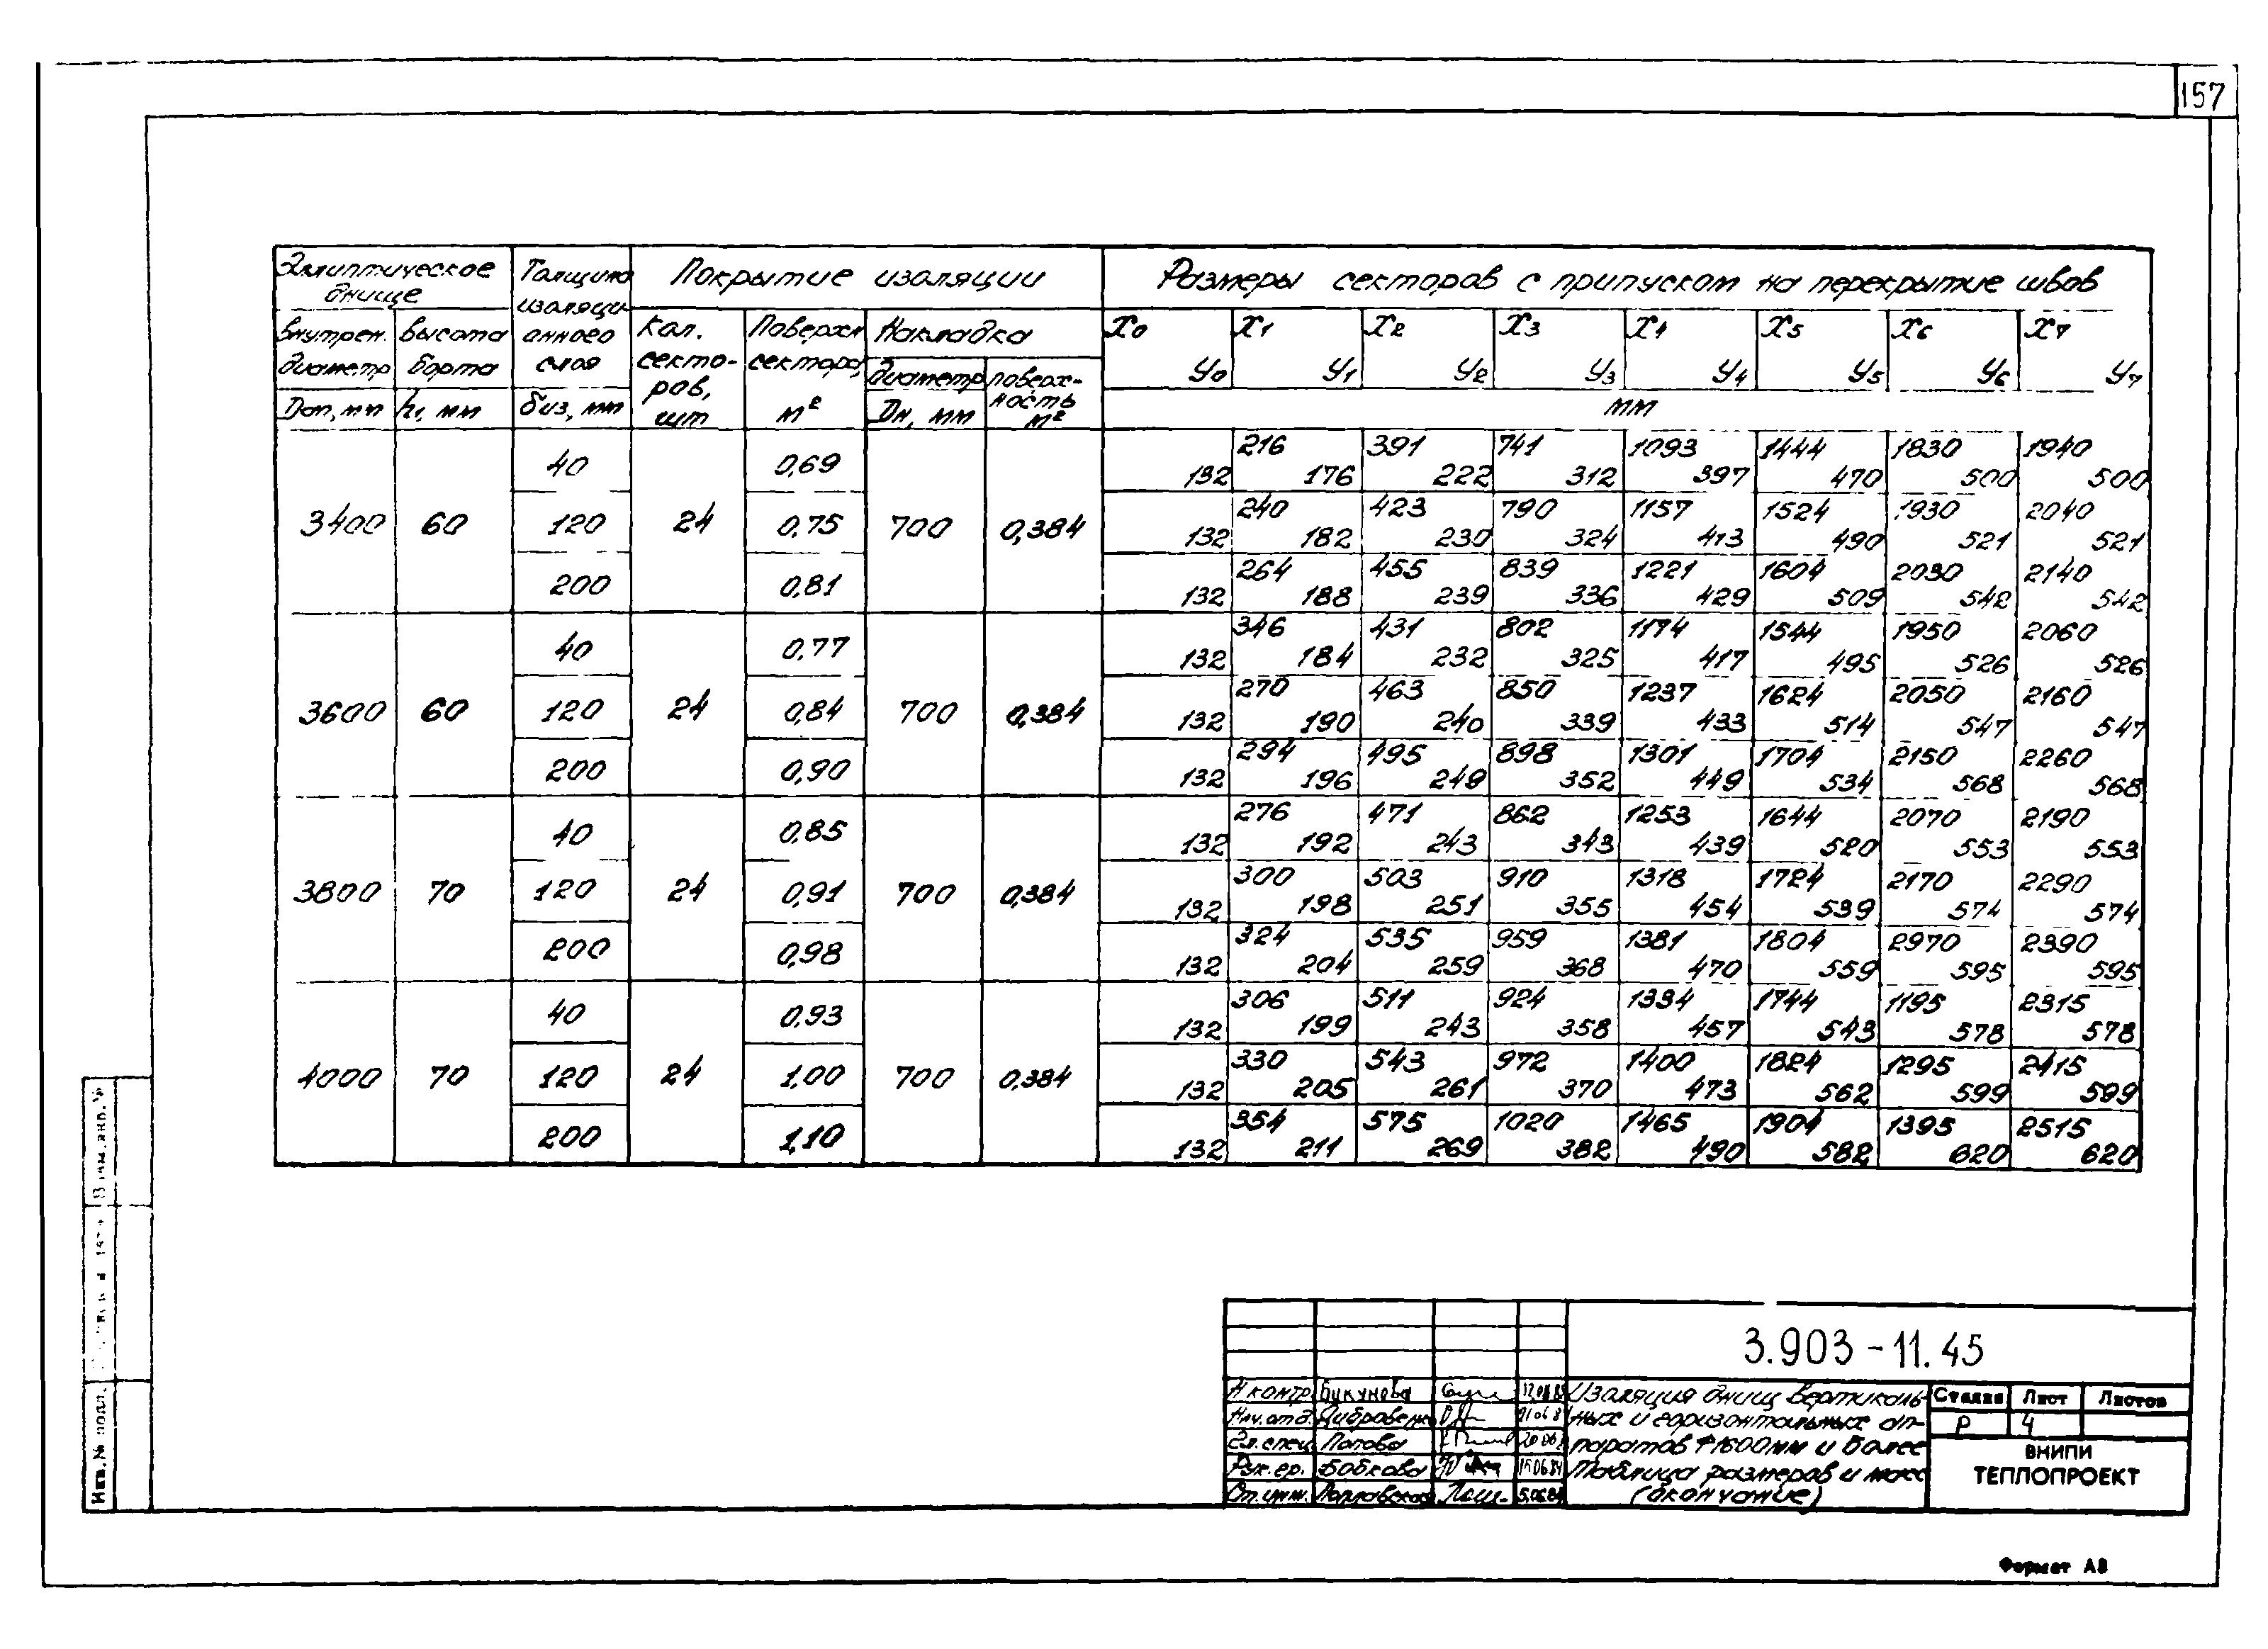 157
Эллиптическое днище
Толщина изоляционного слоя
Покрытие изоляции
Размеры секторов с припуском на перекрытие швов
Внутрен. диаметр
Высота борта
Кол. секторов, шт
Поверхн. сектора, м²
Накладка
X0 X1 X2 X3 X4 X5 X6 X7
У0 У1 У2 У3 У4 У5 У6 У7
Dоп, мм h1, мм биз, мм
диаметр Dн, мм
поверхность м²
мм
216 391 741 1093 1444 1830 1940
40 0,69
132 176 222 312 397 470 500 500
240 423 790 1157 1524 1930 2040
3400 60 120 24 0,75 700 0,384
132 182 230 324 413 490 521 521
264 455 839 1221 1604 2030 2140
200 0,81
132 188 239 336 429 509 542 542
346 431 802 1174 1544 1950 2060
40 0,77
132 184 232 325 417 495 526 526
270 463 850 1237 1624 2050 2160
3600 60 120 24 0,84 700 0,384
132 190 240 339 433 514 547 547
294 495 898 1301 1704 2150 2260
200 0,90
132 196 249 352 449 534 568 568
276 471 862 1253 1644 2070 2190
40 0,85
132 192 243 343 439 520 553 553
300 503 910 1318 1724 2170 2290
3800 70 120 24 0,91 700 0,384
132 198 251 355 454 539 574 574
324 535 959 1381 1804 2970 2390
200 0,98
132 204 259 368 470 559 595 595
306 511 924 1334 1744 1195 2315
40 0,93
132 199 243 358 457 543 578 578
330 543 972 1400 1824 1295 2415
4000 70 120 24 1,00 700 0,384
132 205 261 370 473 562 599 599
354 575 1020 1465 1904 1395 2515
200 1,10
132 211 269 382 490 582 620 620
3.903-11.45
Н контр. Букунова
Нач. отд.
Гл. спец. Попова
Рук. гр. Бобкова 15.06.84
Ст. инж.
Изоляция днищ вертикаль-
ных и горизонтальных ап-
паратов ф1600мм и более
Таблица размеров и масс
(окончание)
Стадия Лист Листов
Р 4
ВНИПИ
ТЕПЛОПРОЕКТ
Взам. инв. №
Инв. № подл.
Формат А3